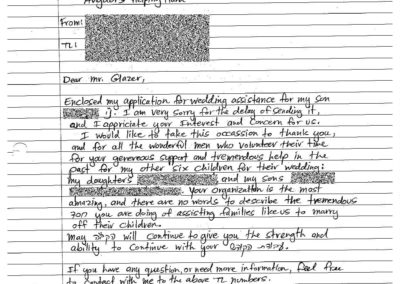 Helping Hand
From:
TL:
Dear Mr. Glazer,
Enclosed my application for wedding assistance for my son
I am very sorry for the delay of sending it,
and I appriciate your Interest and Concern for us.
I would like to take this occassion to thank you,
and for all the wonderful men who volunteer their time
for your genereous support and tremendous help in the
past for my other six children for their wedding:
my daughter's and my sons
Your organization is the most
amazing, and there are no words to describe the tremendous
you are doing of assisting families like us to marry
off their children.
May will continue to give you the strength and
ability to continue with your
If you have any question, or need more information, feel free
to contact with me to the above TL numbers.